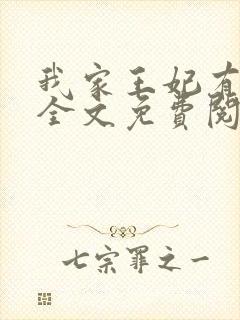 我家王妃有
全文免費閱
七宗罪之一